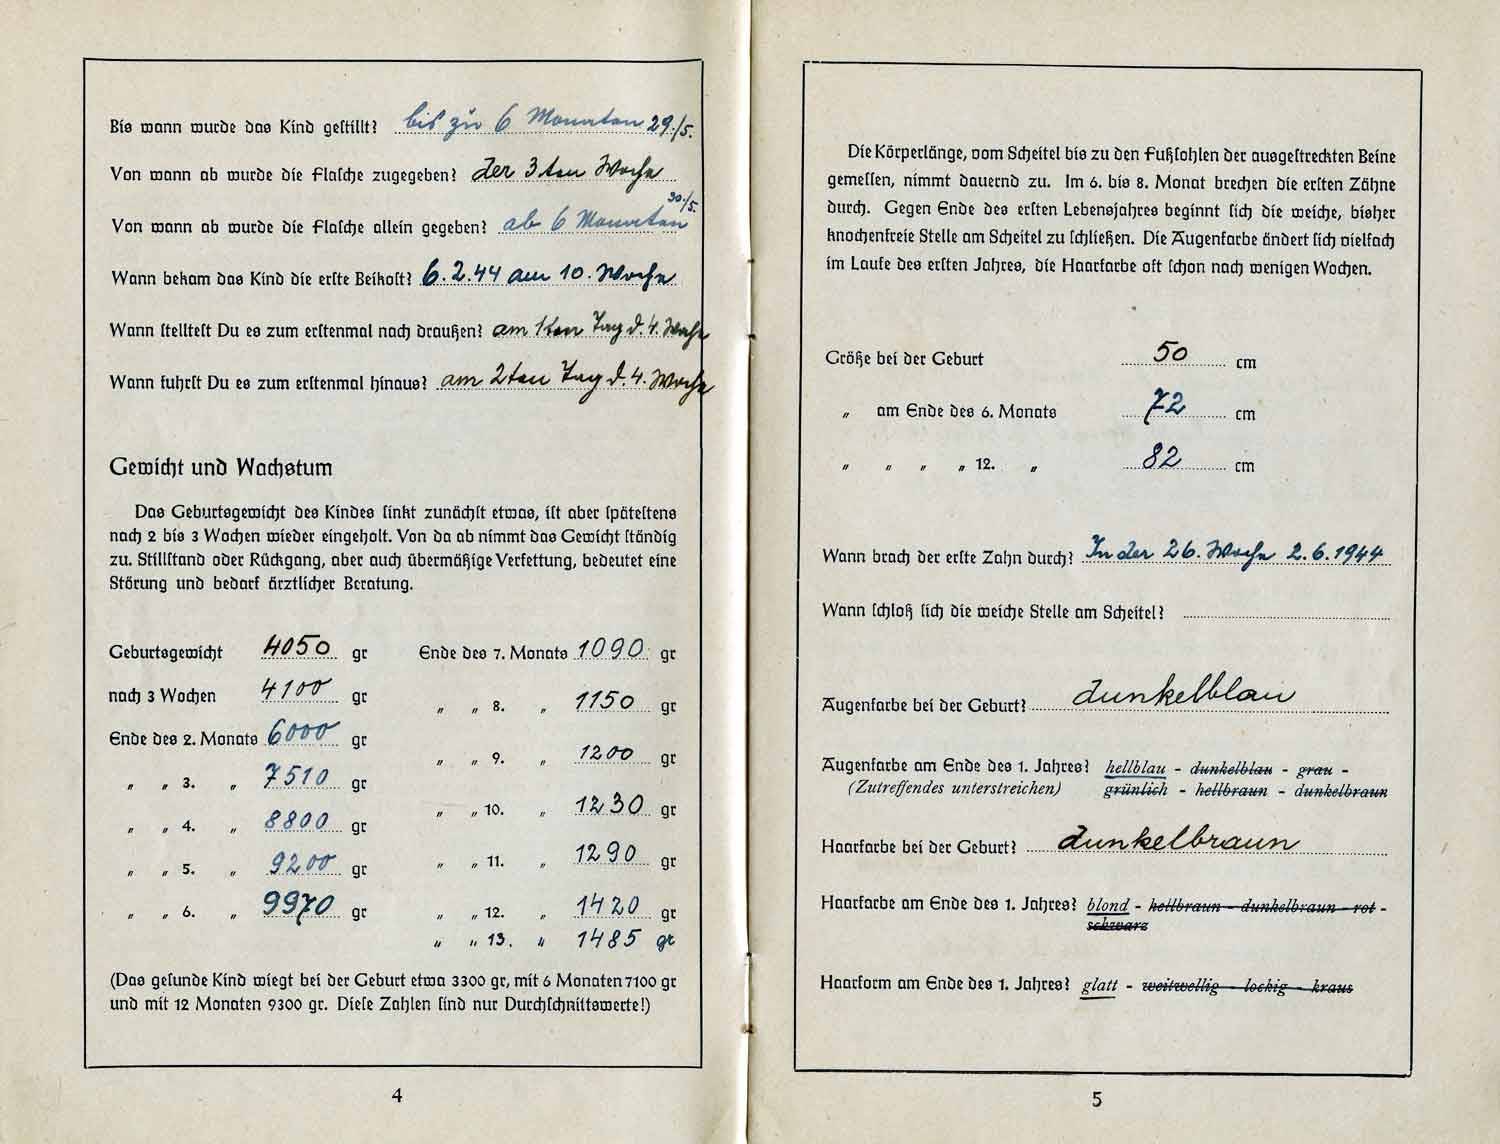 Bis wann wurde das Kind gestillt? bis zu 6 Monaten 29./5.
Von wann ab wurde die Flasche zugegeben? der 3ten Woche
30./5.
Von wann ab wurde die Flasche allein gegeben? ab 6 Monaten
Wann bekam das Kind die erste Beikost? 6.2.44 am 10. Woche
Wann stelltest Du es zum erstenmal nach draußen? am 1ten Tag d. 4. Woche
Wann fuhrst Du es zum erstenmal hinaus? am 2ten Tag d. 4. Woche
Gewicht und Wachstum
Das Geburtsgewicht des Kindes sinkt zunächst etwas, ist aber spätestens
nach 2 bis 3 Wochen wieder eingeholt. Von da ab nimmt das Gewicht ständig
zu. Stillstand oder Rückgang, aber auch übermäßige Verfettung, bedeutet eine
Störung und bedarf ärztlicher Beratung.
Geburtsgewicht 4050 gr
nach 3 Wochen 4100 gr
Ende des 2. Monats 6000 gr
„ „ 3. „ 7510 gr
„ „ 4. „ 8800 gr
„ „ 5. „ 9200 gr
„ „ 6. „ 9970 gr
Ende des 7. Monats 1090 gr
„ „ 8. „ 1150 gr
„ „ 9. „ 1200 gr
„ „ 10. „ 1230 gr
„ „ 11. „ 1290 gr
„ „ 12. „ 1420 gr
„ „ 13. „ 1485 gr
(Das gesunde Kind wiegt bei der Geburt etwa 3300 gr, mit 6 Monaten 7100 gr
und mit 12 Monaten 9300 gr. Diese Zahlen sind nur Durchschnittswerte!)
4
Die Körperlänge, vom Scheitel bis zu den Fußsohlen der ausgestreckten Beine
gemessen, nimmt dauernd zu. Im 6. bis 8. Monat brechen die ersten Zähne
durch. Gegen Ende des ersten Lebensjahres beginnt sich die weiche, bisher
knochenfreie Stelle am Scheitel zu schließen. Die Augenfarbe ändert sich vielfach
im Laufe des ersten Jahres, die Haarfarbe oft schon nach wenigen Wochen.
Größe bei der Geburt 50 cm
„ am Ende des 6. Monats 72 cm
„ „ „ „ 12. „ 82 cm
Wann brach der erste Zahn durch? In der 26. Woche 2.6.1944
Wann schloß sich die weiche Stelle am Scheitel?
Augenfarbe bei der Geburt? dunkelblau
Augenfarbe am Ende des 1. Jahres? hellblau - dunkelblau - grau -
(Zutreffendes unterstreichen) grünlich - hellbraun - dunkelbraun
Haarfarbe bei der Geburt? dunkelbraun
Haarfarbe am Ende des 1. Jahres? blond - hellbraun - dunkelbraun - rot -
schwarz
Haarform am Ende des 1. Jahres? glatt - weitwellig - lockig - kraus
5